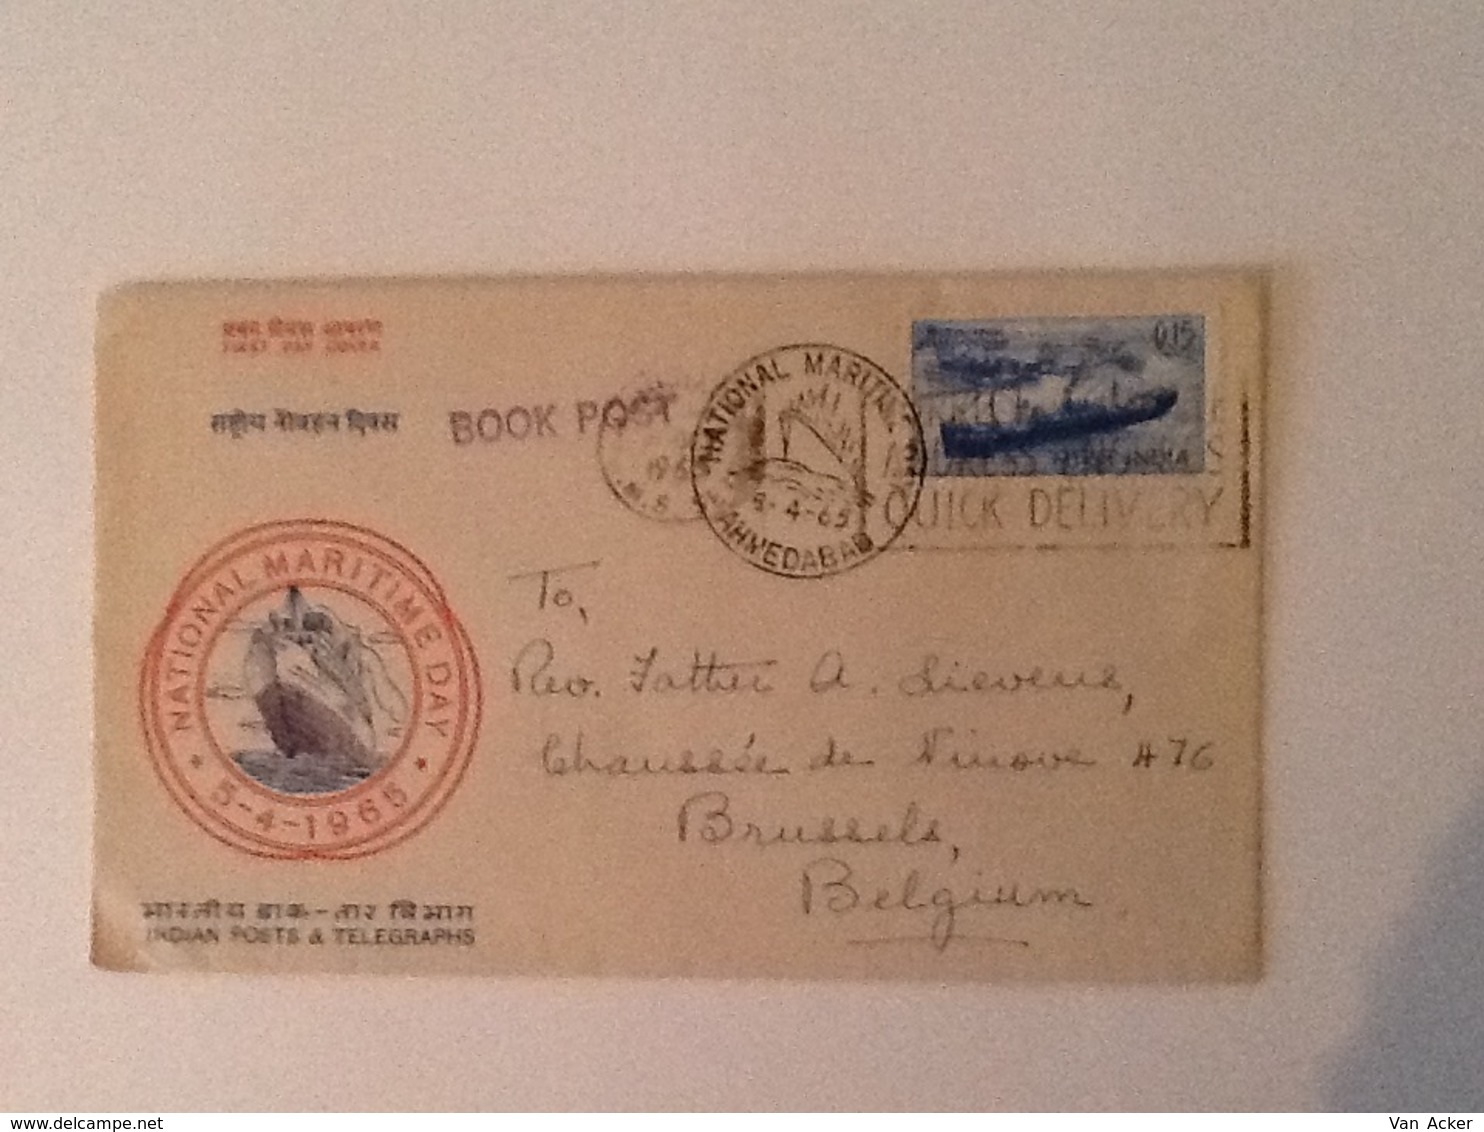 प्रथम दिवस आवरण
FIRST DAY COVER
राष्ट्रीय नौवहन दिवस
BOOK POST
196
NATIONAL MARITIME
5-4-65
AHMEDABAD
0.15
ADDRESS
QUICK DELIVERY
NATIONAL MARITIME DAY
5-4-1965
To,
Rev. Father A. Lievens,
Chaussée de Ninove 476
Brussels,
Belgium
भारतीय डाक-तार विभाग
INDIAN POSTS & TELEGRAPHS
www.delcampe.net
Van Acker